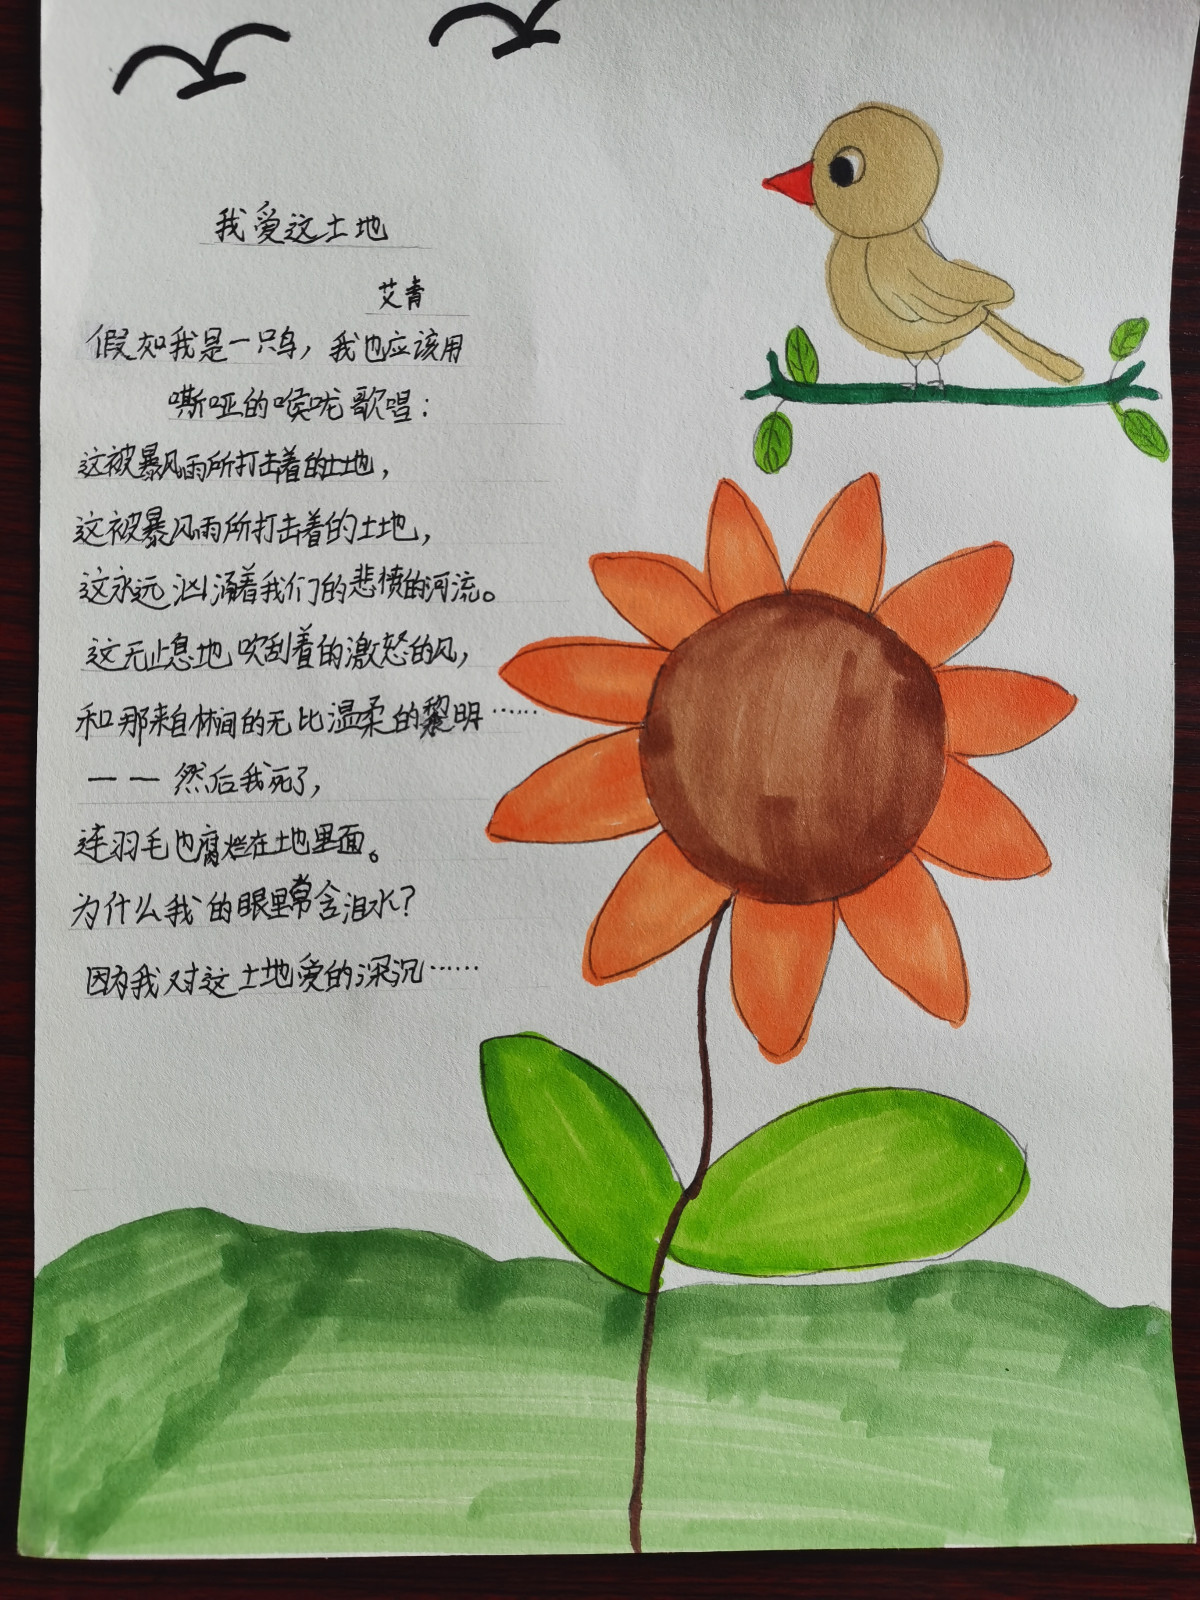 我爱这土地
艾青
假如我是一只鸟，我也应该用
嘶哑的喉咙歌唱：
这被暴风雨所打击着的土地，
这被暴风雨所打击着的土地，
这永远汹涌着我们的悲愤的河流。
这无止息地吹刮着的激怒的风，
和那来自林间的无比温柔的黎明……
——然后我死了，
连羽毛也腐烂在土地里面。
为什么我的眼里常含泪水？
因为我对这土地爱的深沉……